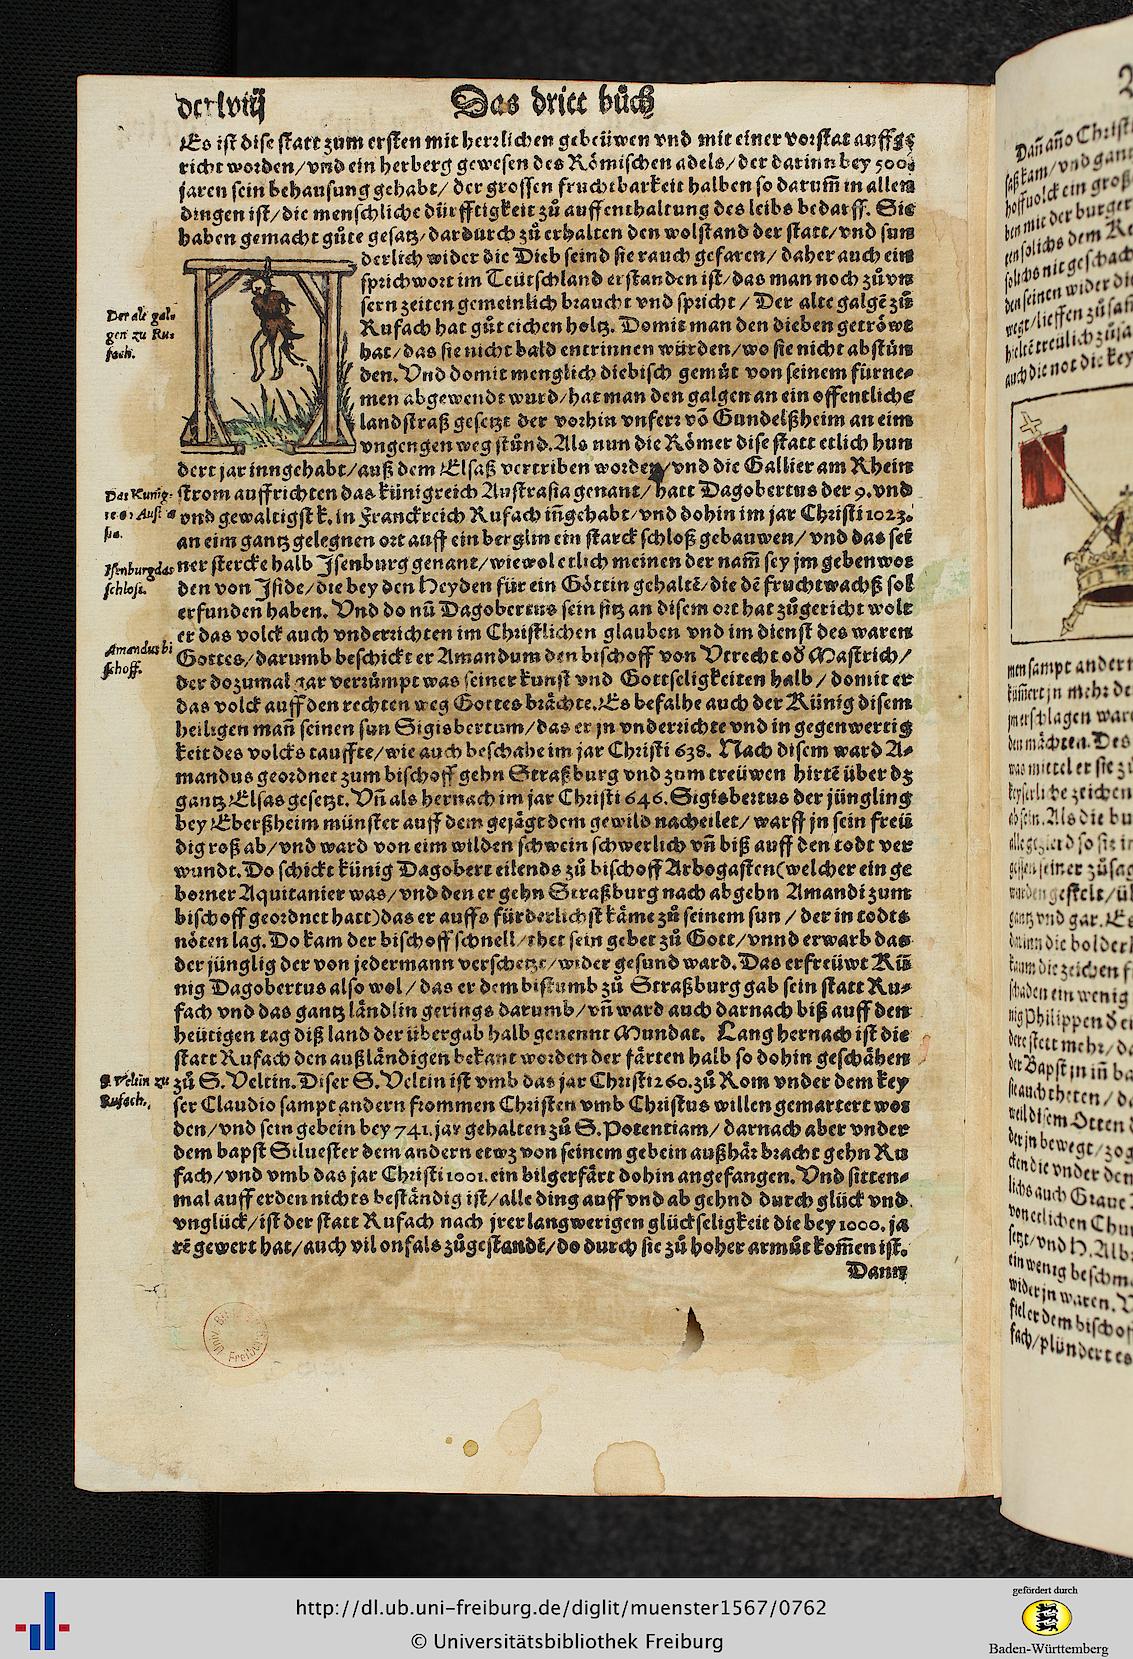 Das dritt bůch
Es ist dise statt zum ersten mit herrlichen gebeüwen vnd mit einer vorstat auffge
richt worden/vnd ein herberg gewesen des Römischen adels/der darinn bey 500.
jaren sein behausung gehabt/ der grossen fruchtbarkeit halben so darum̃ in allen
dingen ist/die menschliche dürfftigkeit zů auffenthaltung des leibs bedarff. Sie
haben gemacht gůte gesatz/dardurch zů erhalten den wolstand der statt/vnd sun
derlich wider die Dieb seind sie rauch gefaren/ daher auch ein
sprichwort im Teütschland erstanden ist/das man noch zů vn
sern zeiten gemeinlich braucht vnd spricht/ Der alte galgẽ zů
Rufach hat gůt eichen holtz. Domit man den dieben getröwt
hat/das sie nicht bald entrinnen würden/wo sie nicht abstůn
den. Vnd domit menglich diebisch gemůt von seinem fürne-
men abgewendt wurd/hat man den galgen an ein offentliche
landstraß gesetzt der vorhin vnferr võ Gundelßheim an eim
vngengen weg stůnd. Als nun die Römer dise statt etlich hun
Der alt gal-
gen zu Ru-
fach.
dert jar inngehabt/auß dem Elsaß vertriben worden/vnd die Gallier am Rhein
strom auffrichten das künigreich Austrasia genant/hatt Dagobertus der 9. vnd
vnd gewaltigst k. in Franckreich Rufach iñgehabt/vnd dohin im jar Christi 1023.
an eim gantz gelegnen ort auff ein berglin ein starck schloß gebauwen/ vnd das sei
ner stercke halb Isenburg genant/wiewol etlich meinen der nam̃ sey jm geben wor
den von Iside/die bey den Heyden für ein Göttin gehaltẽ/die dẽ fruchtwachß sol
erfunden haben. Vnd do nũ Dagobertus sein sitz an disem ort hat zůgericht wolt
er das volck auch vnderrichten im Christlichen glauben vnd im dienst des waren
Gottes/darumb beschickt er Amandum den bischoff von Vtrecht oď Mastrich/
der dozumal gar verrümpt was seiner kunst vnd Gottseligkeiten halb/ domit er
das volck auff den rechten weg Gottes brächte. Es befalhe auch der Künig disem
heiligen mañ seinen sun Sigisbertum/das er jn vnderrichte vnd in gegenwertig
keit des volcks tauffte/wie auch beschahe im jar Christi 638. Nach disem ward A-
mandus geordnet zum bischoff gehn Straßburg vnd zum treüwen hirtẽ über dz
gantz Elsas gesetzt. Vñ als hernach im jar Christi 646. Sigisbertus der jüngling
bey Eberßheim münster auff dem gejägt dem gewild nacheilet/ warff jn sein freü
dig roß ab/vnd ward von eim wilden schwein schwerlich vñ biß auff den todt ver
wundt. Do schickt künig Dagobert eilends zů bischoff Arbogasten(welcher ein ge
borner Aquitanier was/vnd den er gehn Straßburg nach abgehn Amandi zum
bischoff geordnet hatt)das er auffs fürderlichst käme zů seinem sun/ der in todts
nöten lag. Do kam der bischoff schnell/thet sein gebet zů Gott/vnnd erwarb das
der jünglig der von jedermann verschetzt/wider gesund ward. Das erfreüwt Kü
nig Dagobertus also wol/ das er dem bistumb zů Straßburg gab sein statt Ru-
fach vnd das gantz ländlin gerings darumb/vñ ward auch darnach biß auff den
heütigen tag diß land der übergab halb genennt Mundat. Lang hernach ist die
statt Rufach den außländigen bekant worden der färten halb so dohin geschähen
zů S. Veltin. Diser S. Veltin ist vmb das jar Christi 1260. zů Rom vnder dem key
ser Claudio sampt andern frommen Christen vmb Christus willen gemartert wor
den/vnd sein gebein bey 741. jar gehalten zů S. Potentiam/ darnach aber vnder
dem bapst Siluester dem andern etwz von seinem gebein außhär bracht gehn Ru
fach/vnd vmb das jar Christi 1001. ein bilgerfärt dohin angefangen. Vnd sitten-
mal auff erden nichts beständig ist/alle ding auff vnd ab gehnd durch glück vnd
vnglück/ist der statt Rufach nach jrer langwerigen glückseligkeit die bey 1000. ja
rẽ gewert hat/auch vil onfals zůgestandẽ/do durch sie zů hoher armůt kom̃en ist.
Dann
Das Künig-
Isenburg das
schloß.
Amandus bi
schoff.
S. Veltin zu
Rufach.
http://dl.ub.uni-freiburg.de/diglit/muenster1567/0762
© Universitätsbibliothek Freiburg
gefördert durch
Baden-Württemberg